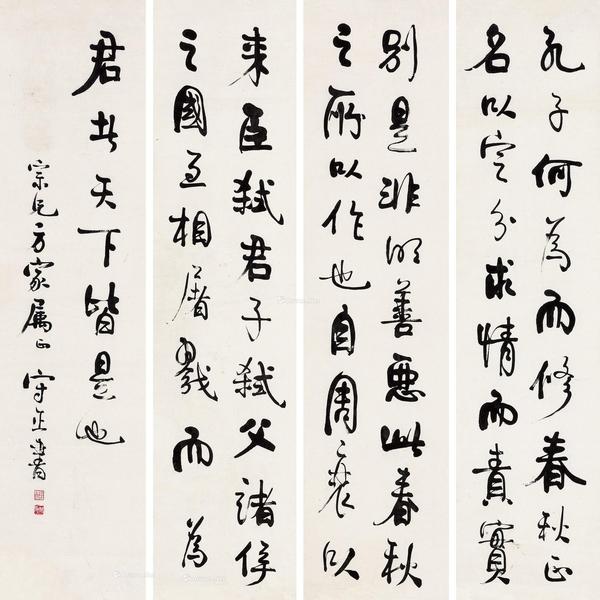 孔子何為而修春秋正
名以定分求情而責實
別是非明善惡此春秋
之所以作也自周之衰以
来臣弒君子弒父諸侯
之國互相屠戮而為
君者天下皆是也
宗兄方家属正 守正